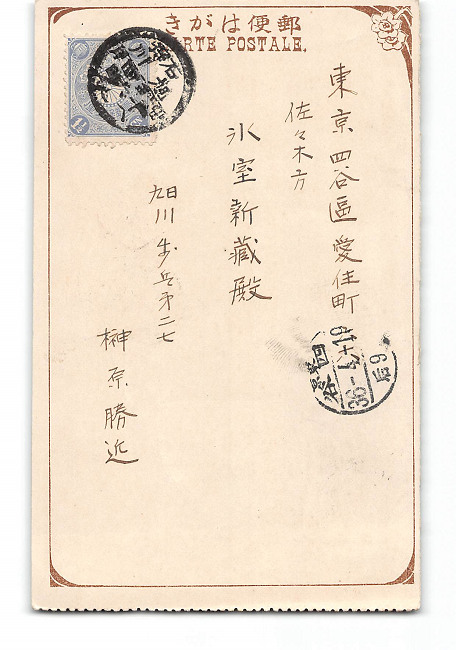 郵便はがき
CARTE POSTALE.
東京四谷區愛住町
佐々木方
氷室新藏殿
旭川歩兵第二七
榊原勝近
四谷
36-
后9
1½